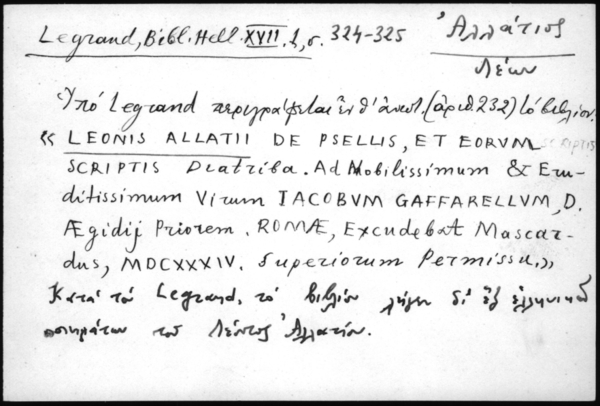 Legrand, Bibl. Hell. XVII. 1, σ. 324-325
Ἀλλάτιος
Λέων
Ὑπό Legrand περιγράφεται ἐν θ' ἀνωτ. (ἀριθ. 232) τό βιβλίον.
« LEONIS ALLATII DE PSELLIS, ET EORVM SCRIPTIS
SCRIPTIS Diatriba. Ad Nobilissimum & Eru-
ditissimum Virum IACOBVM GAFFARELLVM, D.
Ægidij Priorem. ROMÆ, Excudebat Mascar-
dus, MDCXXXIV. Superiorum Permissu.»
Κατά τόν Legrand, τό βιβλίον λήγει δι' ἕξ ἑλληνικῶν
ποιημάτων τοῦ Λέοντος Ἀλλατίου.